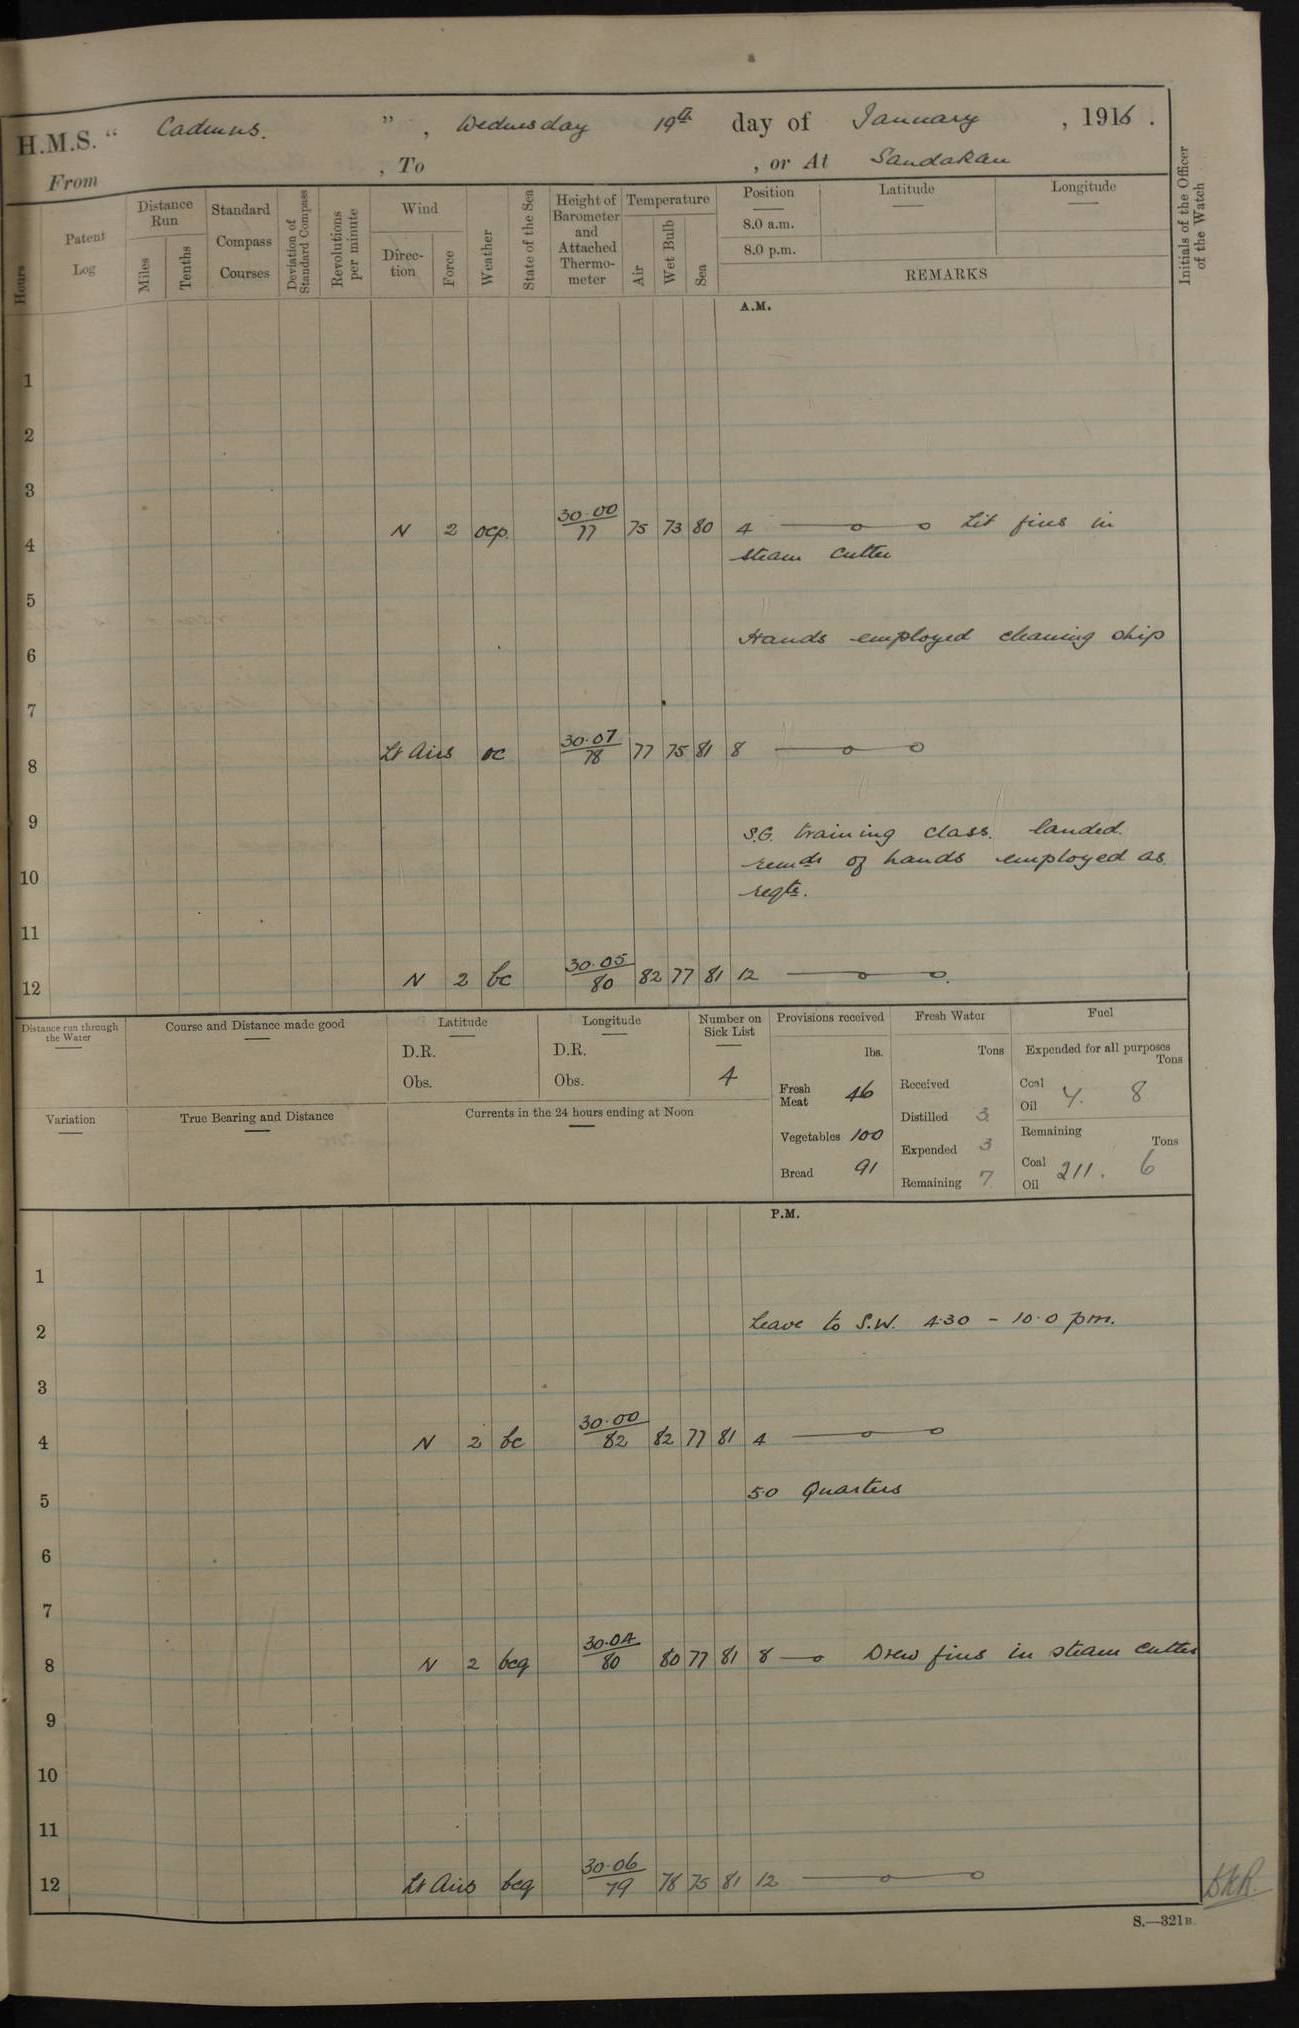 H.M.S. "Cadmus.", Wednesday 19th day of January, 1916.
From , To , or At Sandakan
Hours
Patent Log
Distance Run
Miles
Tenths
Standard Compass Courses
Deviation of Standard Compass
Revolutions per minute
Wind
Direc-tion
Force
Weather
State of the Sea
Height of Barometer and Attached Thermo-meter
Temperature
Air
Wet Bulb
Sea
Position
8.0 a.m.
8.0 p.m.
Latitude
Longitude
REMARKS
Initials of the Officer of the Watch
A.M.
1
2
3
4 N 2 ocp. 30.00 77 75 73 80 4 Lit fires in
steam cutter
5
Hands employed cleaning ship
6
7
8 Lt Airs oc 30.07 78 77 75 81 8
9
S.G. training class. landed.
remdr of hands employed as
10
reqte.
11
12 N 2 bc 30.05 80 82 77 81 12
Distance run through the Water
Course and Distance made good
Latitude
D.R.
Obs.
Longitude
D.R.
Obs.
Number on Sick List
4
Provisions received
lbs.
Fresh Meat 46
Vegetables 100
Bread 91
Fresh Water
Tons
Received
Distilled 3
Expended 3
Remaining 7
Fuel
Expended for all purposes
Tons
Coal
Oil 4. 8
Remaining
Tons
Coal 211. 6
Oil
Variation
True Bearing and Distance
Currents in the 24 hours ending at Noon
P.M.
1
2 Leave to S.W. 4.30 - 10.0 pm.
3
4 N 2 bc 30.00 82 82 77 81 4
5 5.0 Quarters
6
7
8 N 2 bcq 30.04 80 80 77 81 8 Drew fires in steam cutter
9
10
11
12 Lt Airs bcq 30.06 79 78 75 81 12
S.—321B.